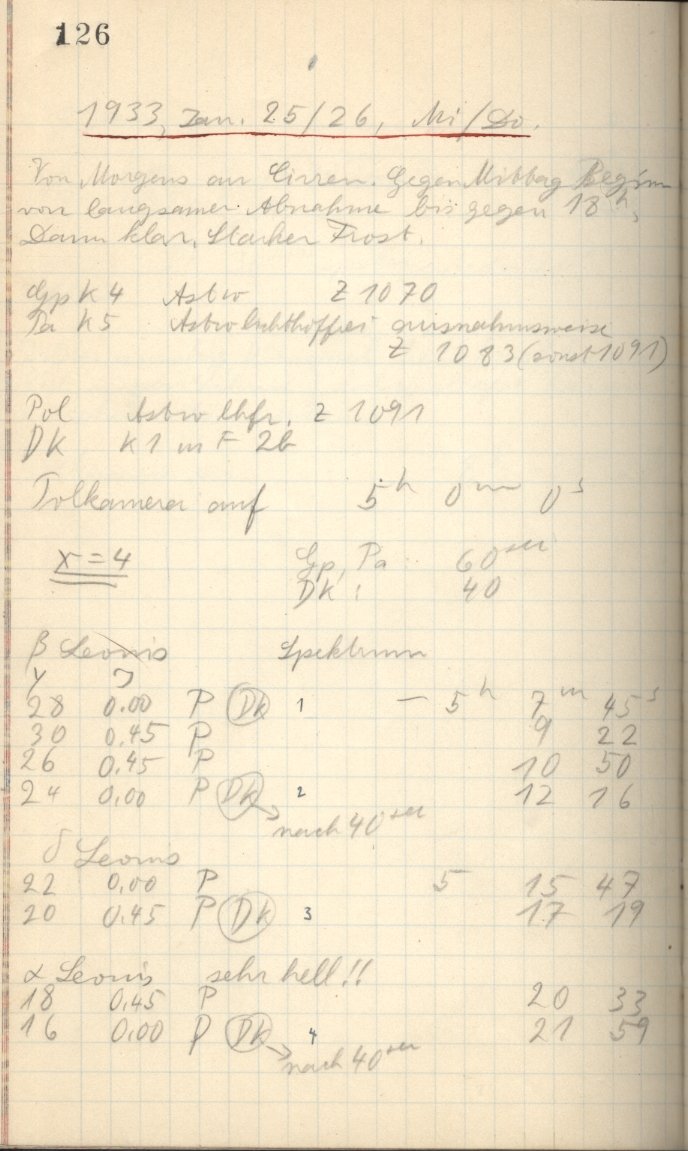 126
1933, Jan. 25/26, Mi/Do.
Von Morgens an Cirren. Gegen Mittag Beginn
von langsamer Abnahme bis gegen 18h,
Dann klar, Starker Frost.
Gp K 4 Astro Z 1070
Pa K 5 Astro lichthoffrei ausnahmsweise
Z 1083 (sonst 1091)
Pol Astro lhfr. Z 1091
DK K 1 m F 26
Tolkamera auf 5h 0m 0s
x = 4 Gp, Pa 60 sec
DK : 40
β Leonis Spektrum
Y J
28 0.00 P DK 1 — 5h 7m 45s
30 0.45 P 9 22
26 0.45 P 10 50
24 0.00 P DK 2 12 16
→ nach 40 sec
δ Leonis
22 0.00 P 5 15 47
20 0.45 P DK 3 17 19
α Leonis sehr hell!!
18 0.45 P 20 33
16 0.00 P DK 4 21 59
→ nach 40 sec